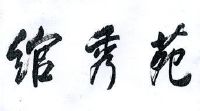 绾秀苑